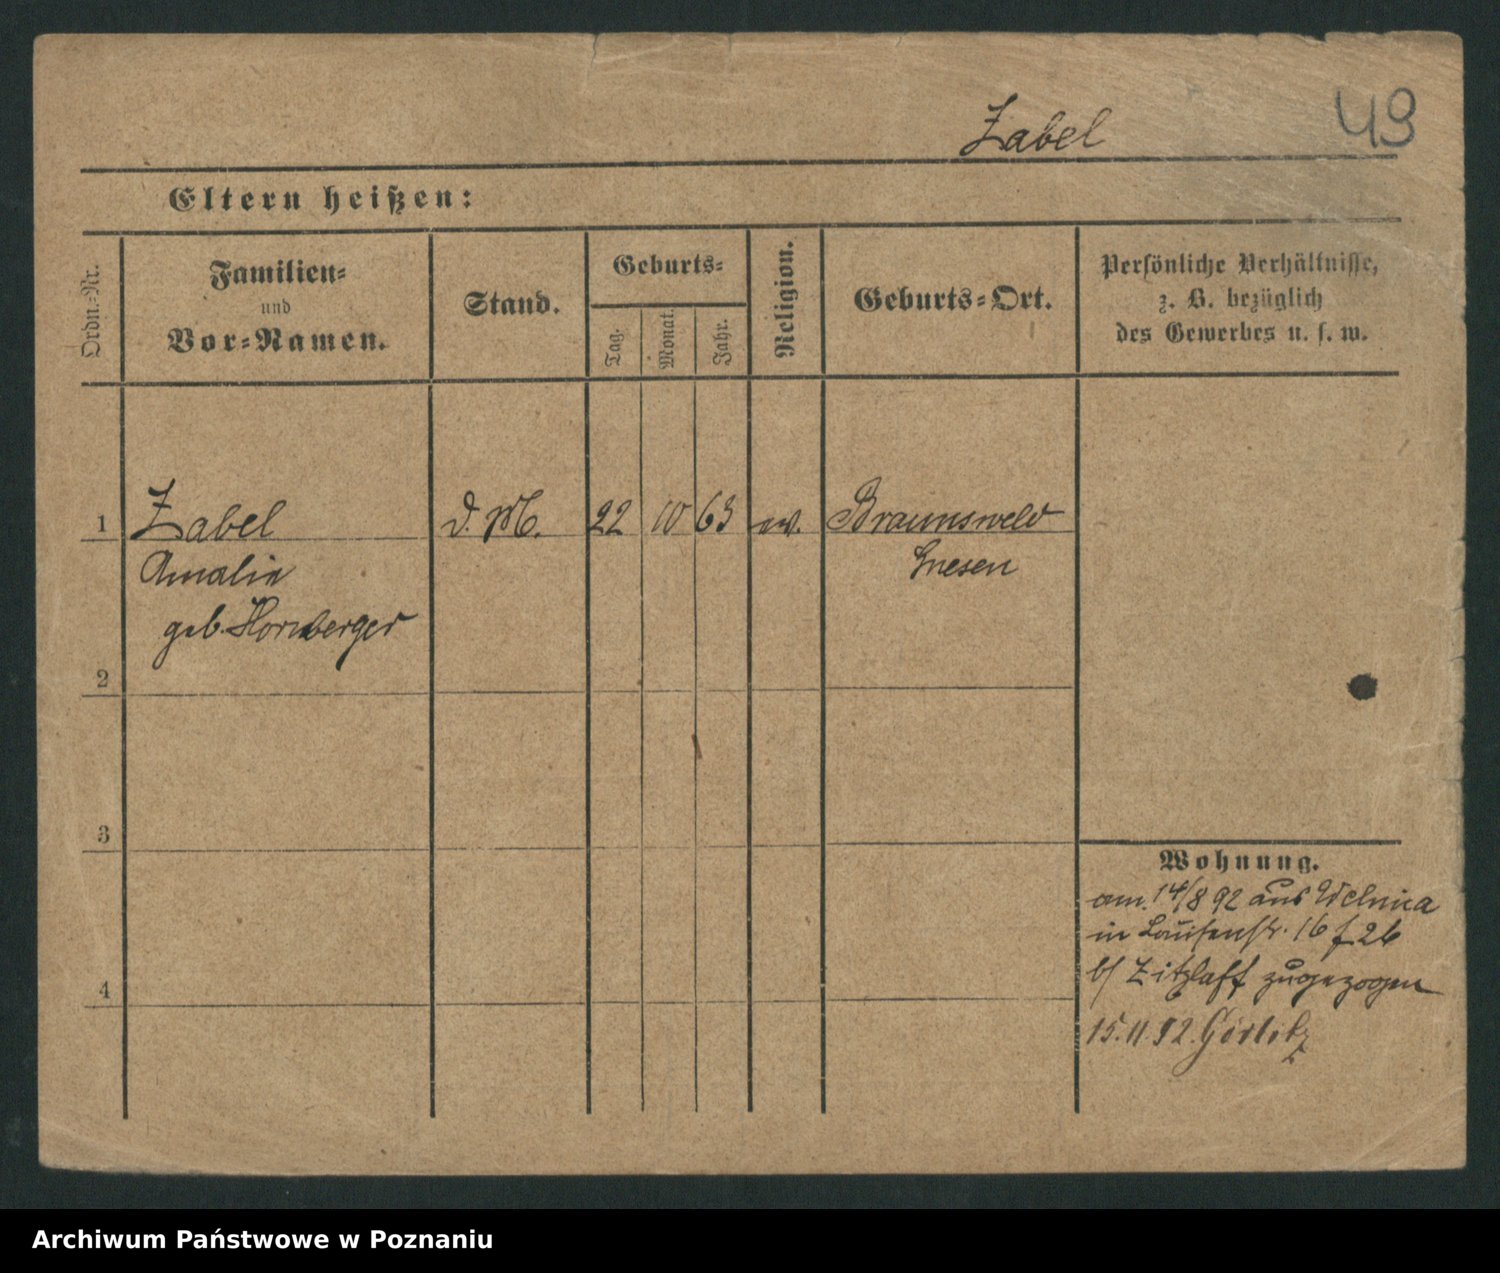 Zabel
49
Eltern heißen:
Ordn.=Nr.
Familien=
und
Vor=Namen.
Stand.
Geburts=
Tag.
Monat.
Jahr.
Religion.
Geburts=Ort.
Persönliche Verhältnisse,
z. B. bezüglich
des Gewerbes u. s. w.
1 Zabel D. M. 22 10 63 ev. Braunsweld
Amalie Gnesen
geb. Hornberger
2
3
4
Wohnung.
am 14/8 92 aus Welnica
in 16 26
b/ Zitzlaff zugezogen
15.11.92. Görlitz
Archiwum Państwowe w Poznaniu